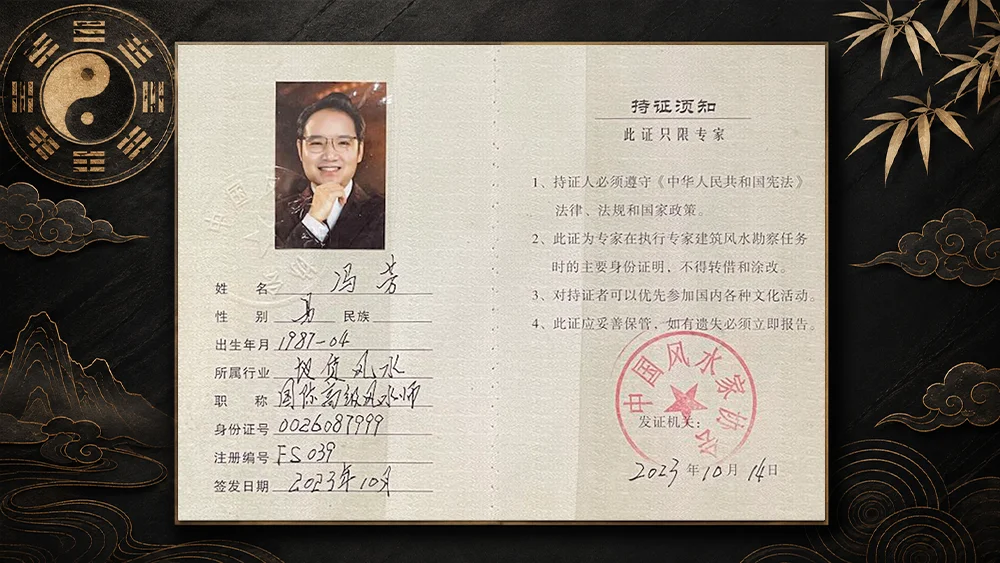 姓 名 冯芳
性 别 男 民族
出生年月 1987-04
所属行业 风水
职 称 国际高级风水师
身份证号 0026087999
注册编号 FS039
签发日期 2023年10月
持证须知
此证只限专家
1、持证人必须遵守《中华人民共和国宪法》
法律、法规和国家政策。
2、此证为专家在执行专家建筑风水勘察任务
时的主要身份证明，不得转借和涂改。
3、对持证者可以优先参加国内各种文化活动。
4、此证应妥善保管，如有遗失必须立即报告。
中国风水家协会
发证机关：
2023年10月14日